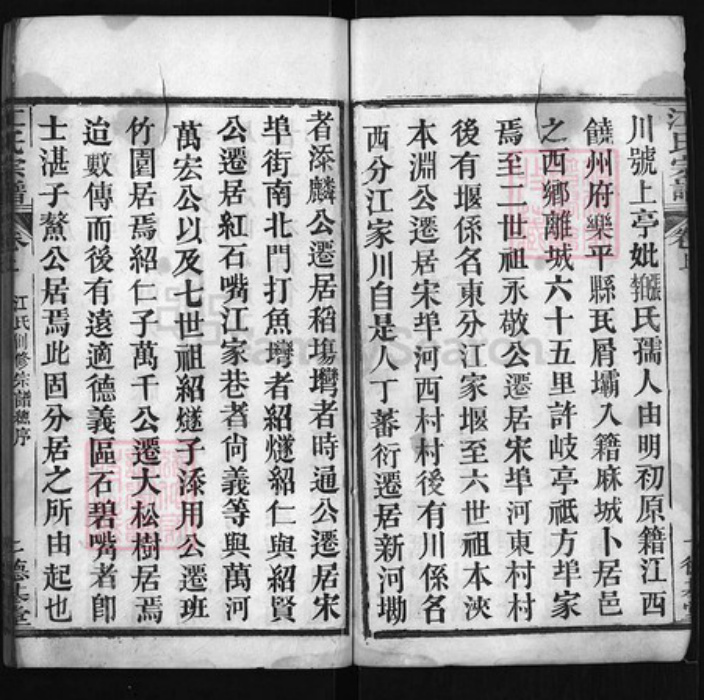 川號上亭妣張氏孺人由明初原籍江西
饒州府樂平縣瓦屑壩入籍麻城卜居邑
之西鄉離城六十五里許岐亭祗方埠家
焉至二世祖永敬公遷居宋埠河東村村
後有堰係名東分江家堰至六世祖本浹
本淵公遷居宋埠河西村村後有川係名
西分江家川自是人丁蕃衍遷居新河坳
者添麟公遷居稻塲壪者時通公遷居宋
埠街南北門打魚壪者紹燧紹仁與紹賢
公遷居紅石嘴江家巷者尙義等與萬河
萬宏公以及七世祖紹燧子添用公遷班
竹園居焉紹仁子萬千公遷大松樹居焉
迨數傳而後有遠適德義區石碧嘴者卽
士湛子鰲公居焉此固分居之所由起也
江氏宗譜
江氏創修宗譜總序
二德本堂
FamilySearch